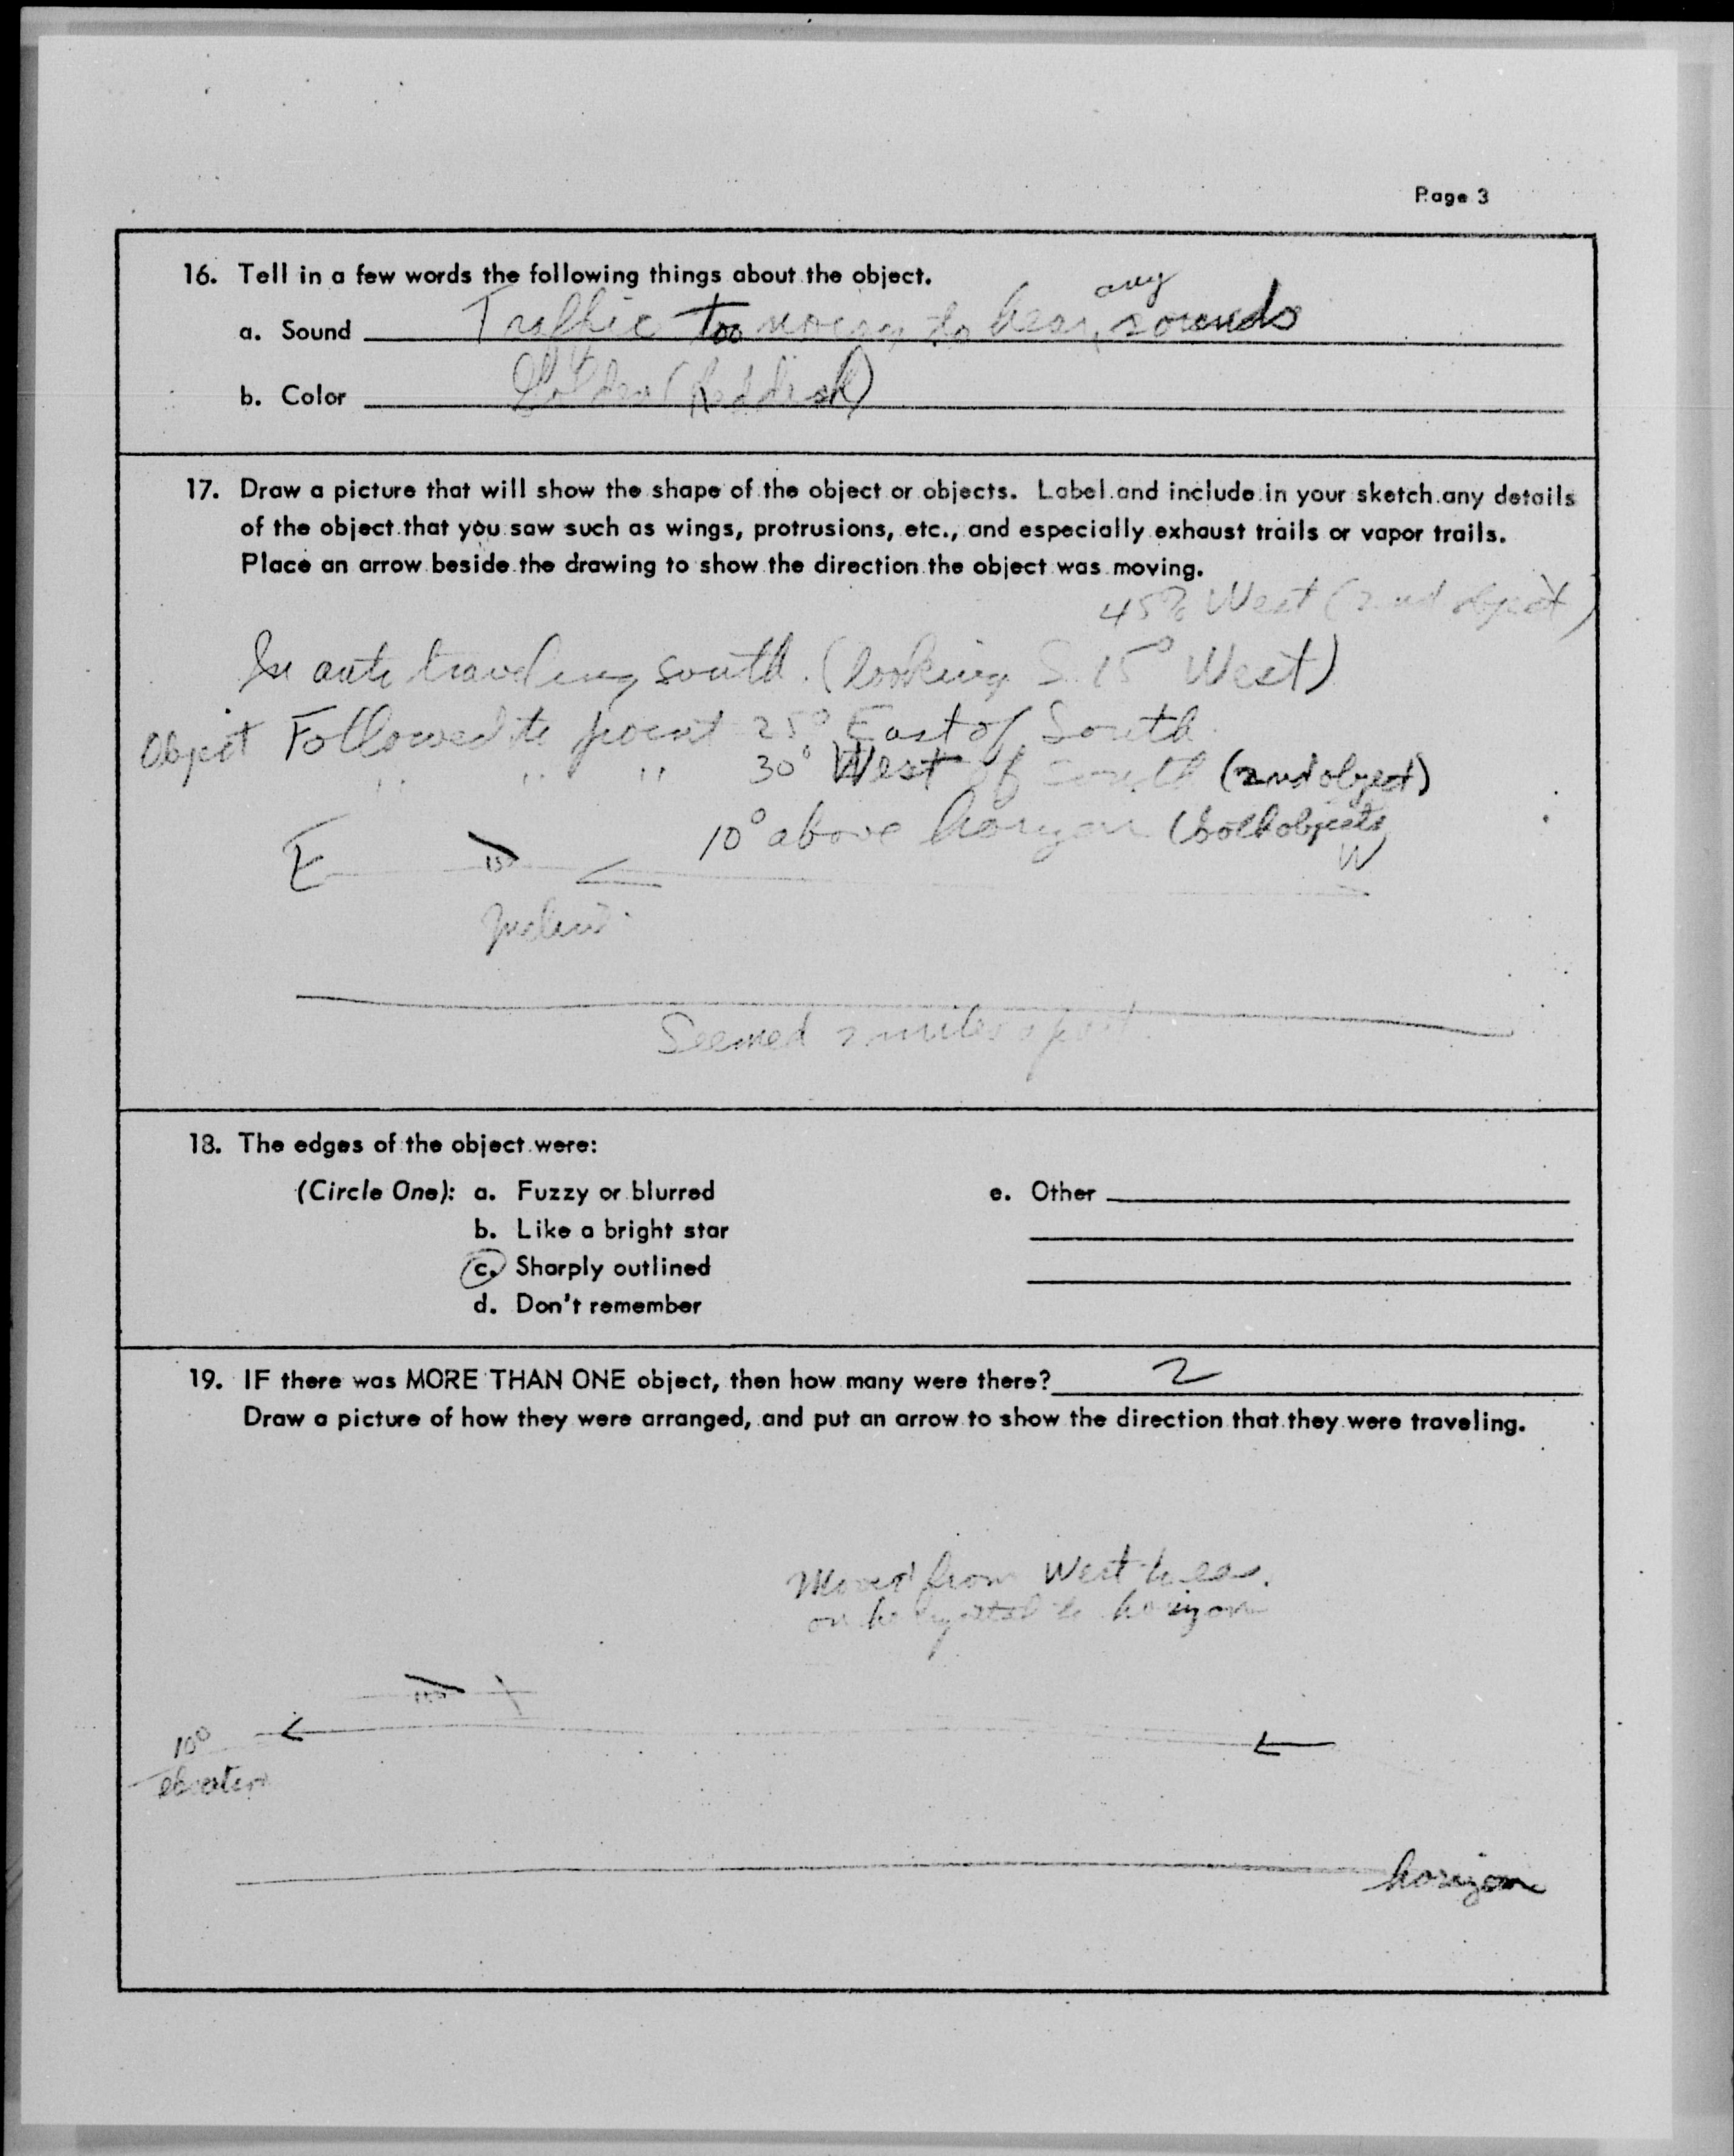 Page 3
16. Tell in a few words the following things about the object.
any
a. Sound Traffic too noisy to hear sounds
b. Color Golden (Reddish)
17. Draw a picture that will show the shape of the object or objects. Label and include in your sketch any details
of the object that you saw such as wings, protrusions, etc., and especially exhaust trails or vapor trails.
Place an arrow beside the drawing to show the direction the object was moving.
45° West (2nd object)
In auto traveling south. (looking S. 15° West)
Object Followed to point 25° East of South
" " " 30° West of South (2nd object)
10° above horizon (both objects
E 15° W
Seemed 2 miles apart
18. The edges of the object were:
(Circle One): a. Fuzzy or blurred e. Other
b. Like a bright star
c. Sharply outlined
d. Don't remember
19. IF there was MORE THAN ONE object, then how many were there? 2
Draw a picture of how they were arranged, and put an arrow to show the direction that they were traveling.
Moved from West to
horizon
10°
elevation
horizon